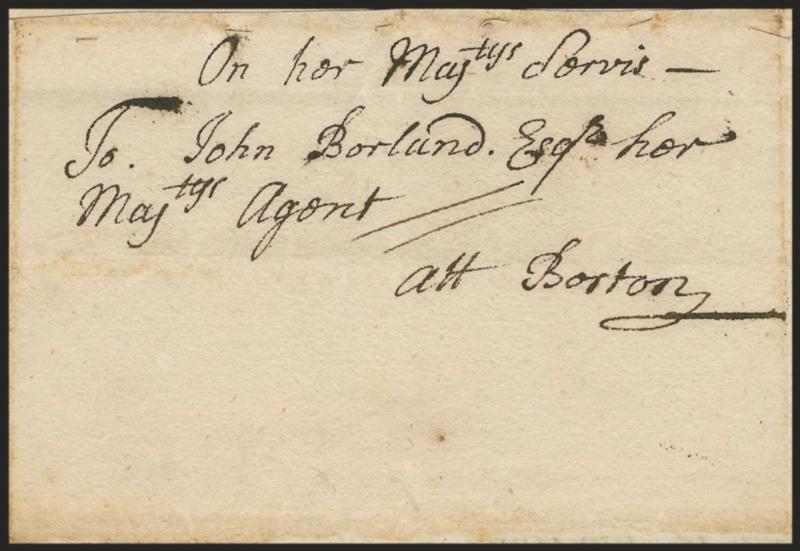 On her Maj^tys Servis —
To. John Borland. Esq^r her
Maj^tys Agent //
att Boston